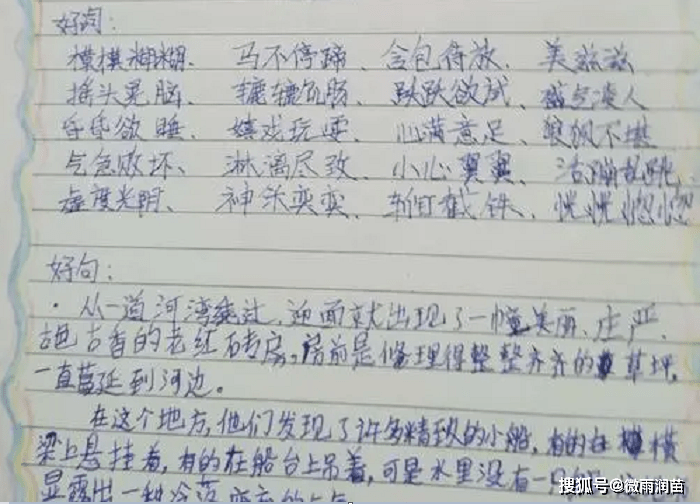 好词:
模模糊糊、马不停蹄、含包待放、美滋滋
摇头晃脑、辘辘饥肠、跃跃欲试、盛气凌人
昏昏欲睡、嬉戏玩耍、心满意足、狼狈不堪
气急败坏、淋漓尽致、小心翼翼、活蹦乱跳、
虚度光阴、神采奕奕、斩钉截铁、恍恍惚惚
好句:
·从一道河湾绕过,迎面就出现了一幢美丽、庄严、
古色古香的老红砖房,房前是修理得整整齐齐的草坪,
一直蔓延到河边。
在这个地方,他们发现了许多精致的小船,有的在横
梁上悬挂着,有的在船台上吊着,可是水里没有一只
显露出一种冷落
搜狐号@微雨润苗